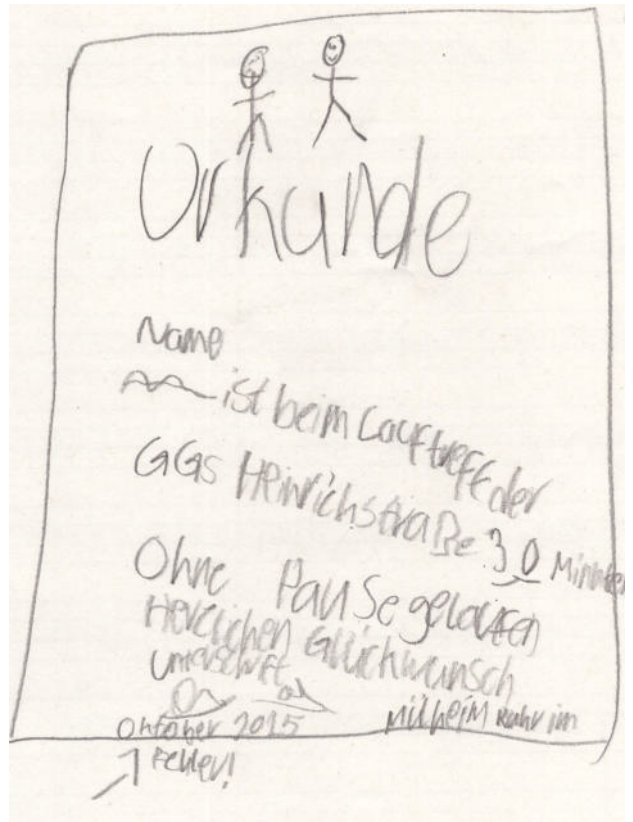 Urkunde
Name
ist beim Lauftreff der
GGS Heinrichstraße 30 Minuten
Ohne Pause gelaufen
Herzlichen Glückwunsch
Unterschrift
Oktober 2015 Mülheim Ruhr im
Fehler!